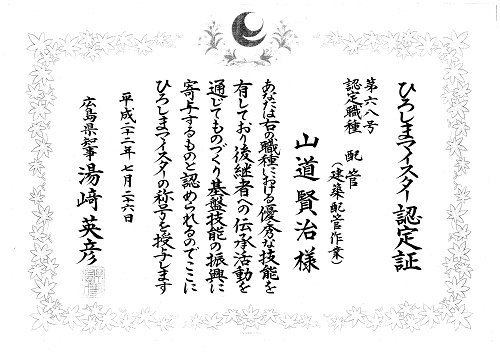 ひろしまマイスター認定証
第六八号
認定職種 配管
(建築配管作業)
山道賢治様
あなたは右の職種における優秀な技能を
有しており後継者への伝承活動を
通じてものづくり基盤技能の振興に
寄与するものと認められるのでここに
ひろしまマイスターの称号を授与します
平成二十二年七月二十六日
広島県知事 湯﨑英彦